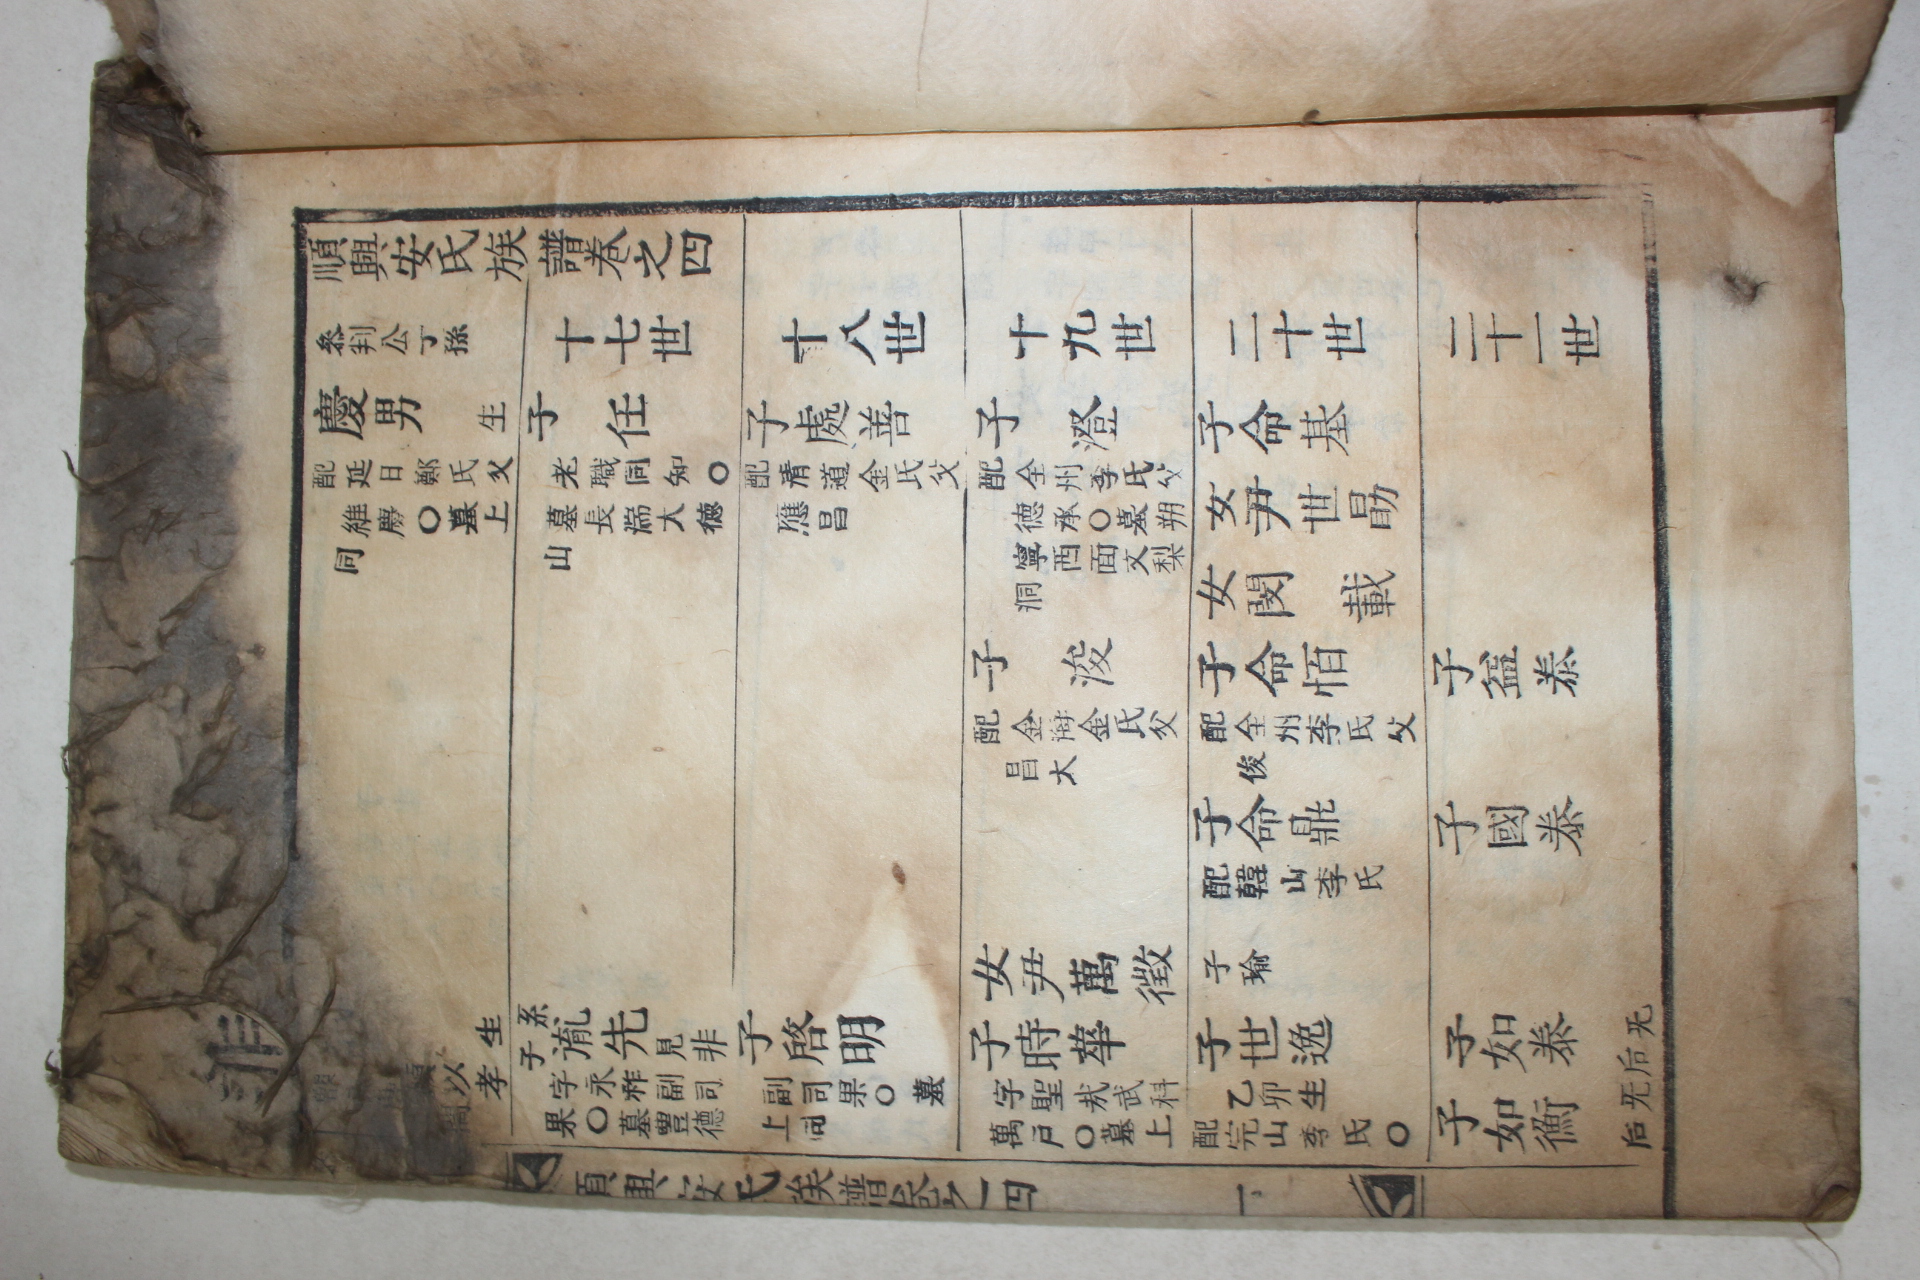 順興安氏族譜卷之四
參判公丁孫 十七世 十八世 十九世 二十世 二十一世
慶男 生 子任 子處善 子澄 子命基
配延日鄭氏父 老職同知〇 配清道金氏父 配全州李氏父 女尹世勛
維慶〇墓上 墓長湍大德 應昌 德承〇墓朔
同 山 寧西面文梨
洞 女閔載
子浚 子命 子益泰
配金海金氏父 配全州李氏父
昌大 俊
子命鼎 子國泰
配韓山李氏
女尹萬徵 子瑜
生 系子胤先見非 子啓明 子時華 子世逸 子如泰 后无
以孝 字永祚副司 副司果〇墓 字聖哉武科 乙卯生
果〇墓豐德 上同 萬戶〇墓上 配完山李氏〇 子如衡 后无
順興安氏族譜卷之四 一